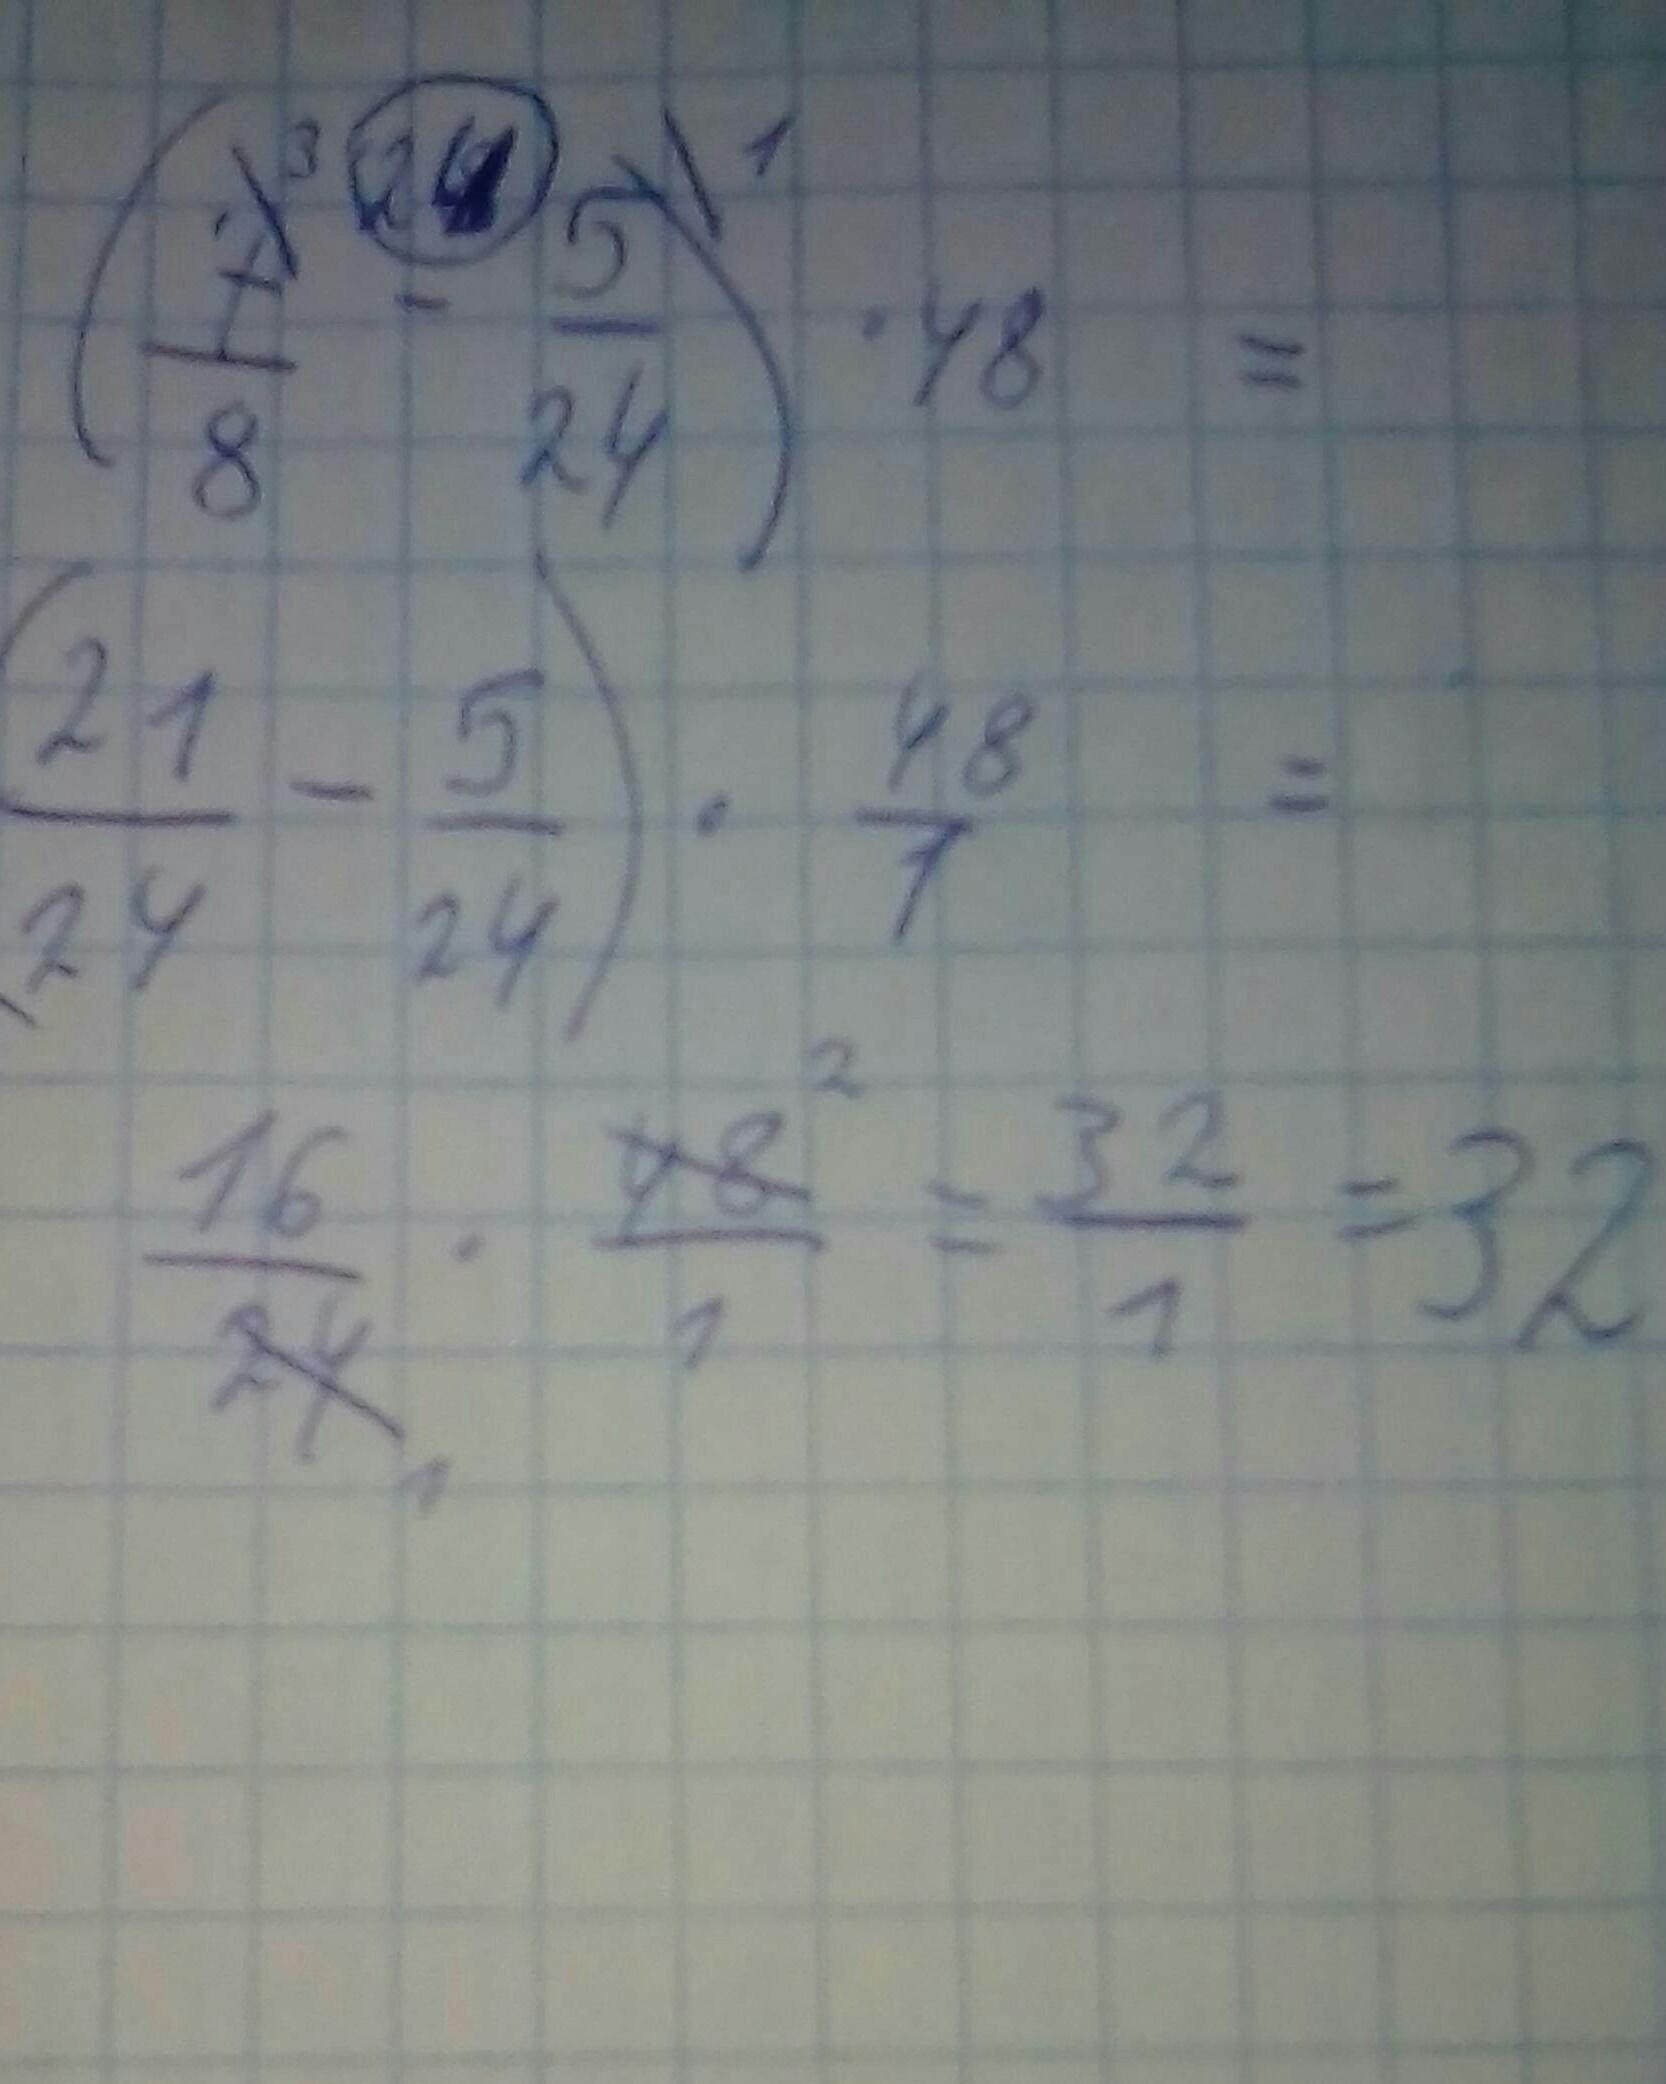 (7/8 \3 - 5/24 \1) · 48 =
24
(21/24 - 5/24) · 48/1 =
16/24 1 · 48 2/1 = 32/1 = 32